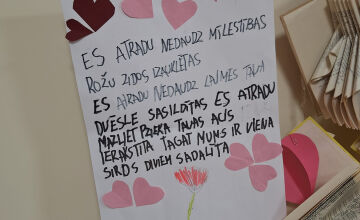 ES ATRADU NEDAUDZ MĪLESTĪBAS
ROŽU ZIEDOS IZKAISĪTAS
ES ATRADU NEDAUDZ LAIMES TAVĀ
DVĒSLĒ SASILDĪTAS ES ATRADU
MAZLIET PRIEKA TAVĀS ACĪS
IERAKSTĪTA TAGAT MUMS IR VIENA
SIRDS DIVIEM SADALĪTA